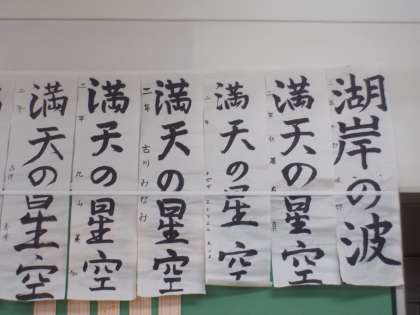 湖岸の波
満天の星空
満天の星空
満天の星空
二年 古川みなみ
満天の星空
満天の星空